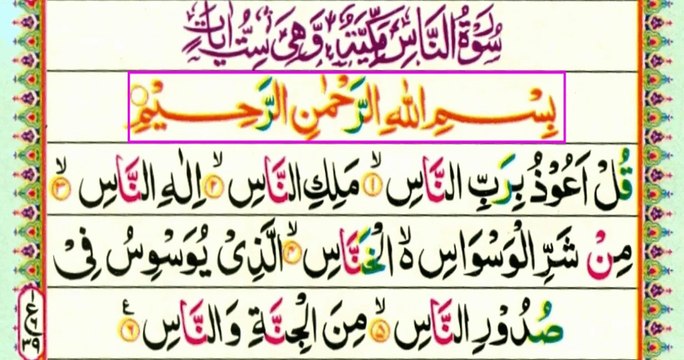 سُوْرَةُ النَّاسِ مَكِّيَّةٌ وَّهِیَ سِتُّ اٰيَاتٍ
بِسْمِ اللّٰهِ الرَّحْمٰنِ الرَّحِيْمِ
قُلْ اَعُوْذُ بِرَبِّ النَّاسِ ۙ﴿۱﴾ مَلِكِ النَّاسِ ۙ﴿۲﴾ اِلٰهِ النَّاسِ ۙ﴿۳﴾
مِنْ شَرِّ الْوَسْوَاسِ ۙ۬ الْخَنَّاسِ ۙ﴿۴﴾ الَّذِیْ يُوَسْوِسُ فِیْ
صُدُوْرِ النَّاسِ ۙ﴿۵﴾ مِنَ الْجِنَّةِ وَ النَّاسِ ﴿۶﴾ ع
۱
ع
۶
۳۹